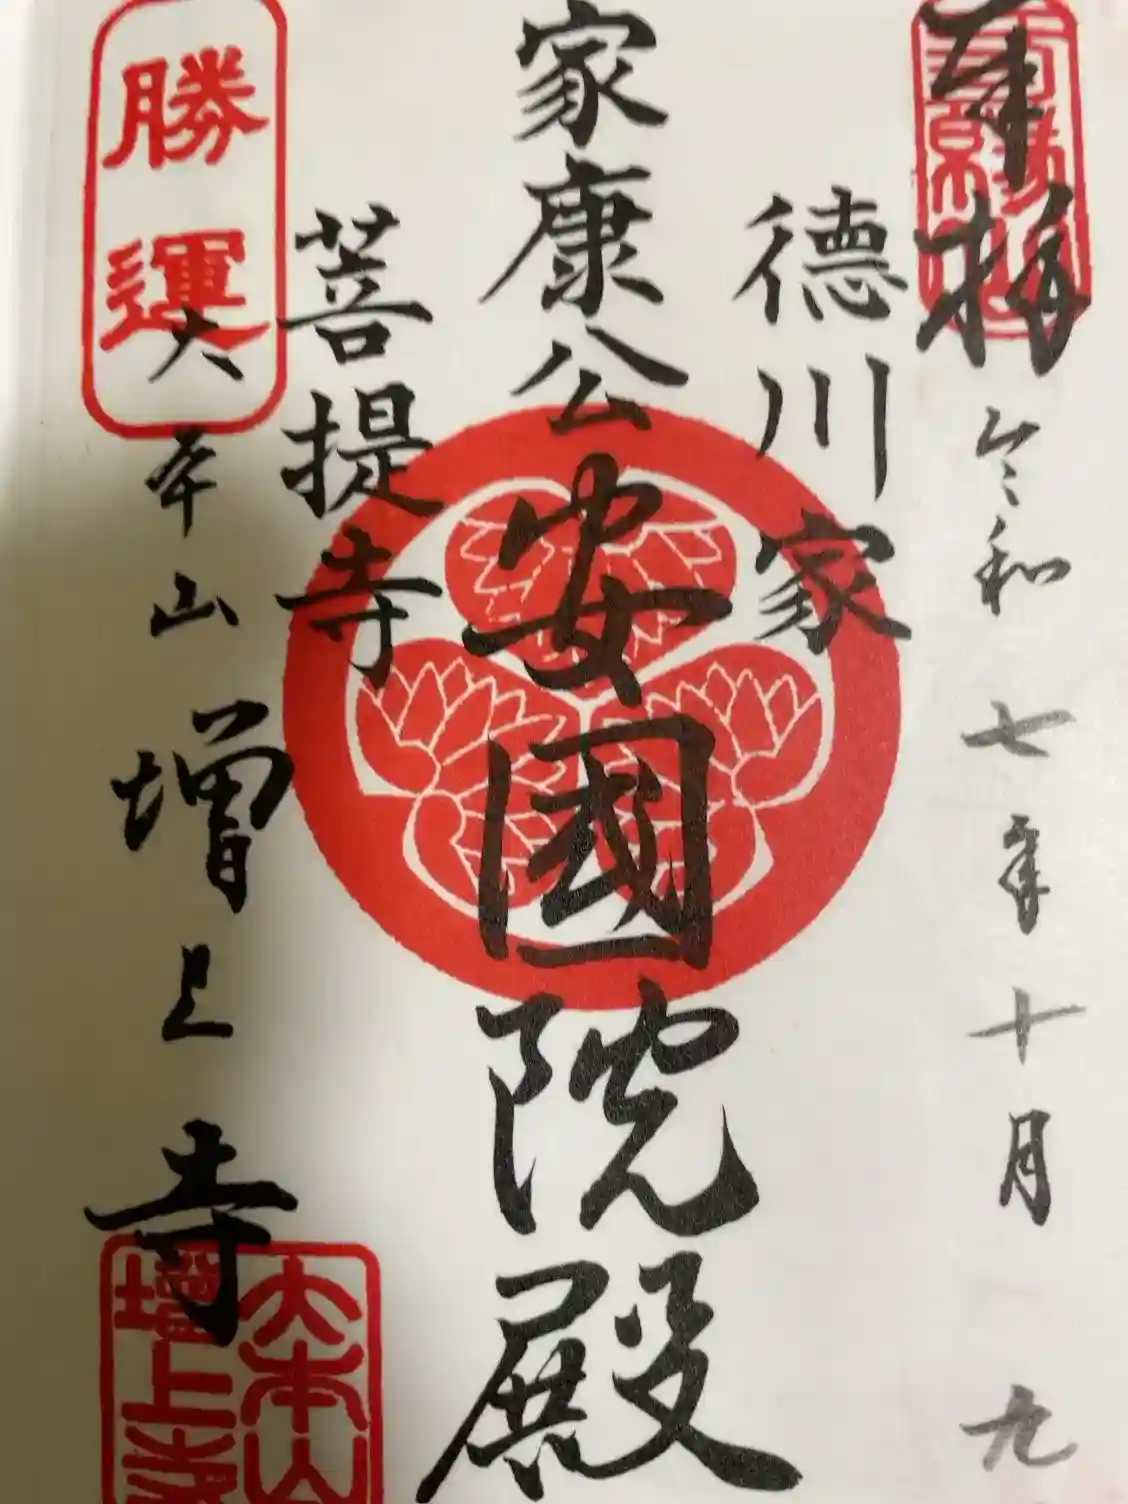 奉拝
令和七年十月 九
徳川家
家康公
安國院殿
菩提寺
勝運
大本山 増上寺
大本山
増上寺